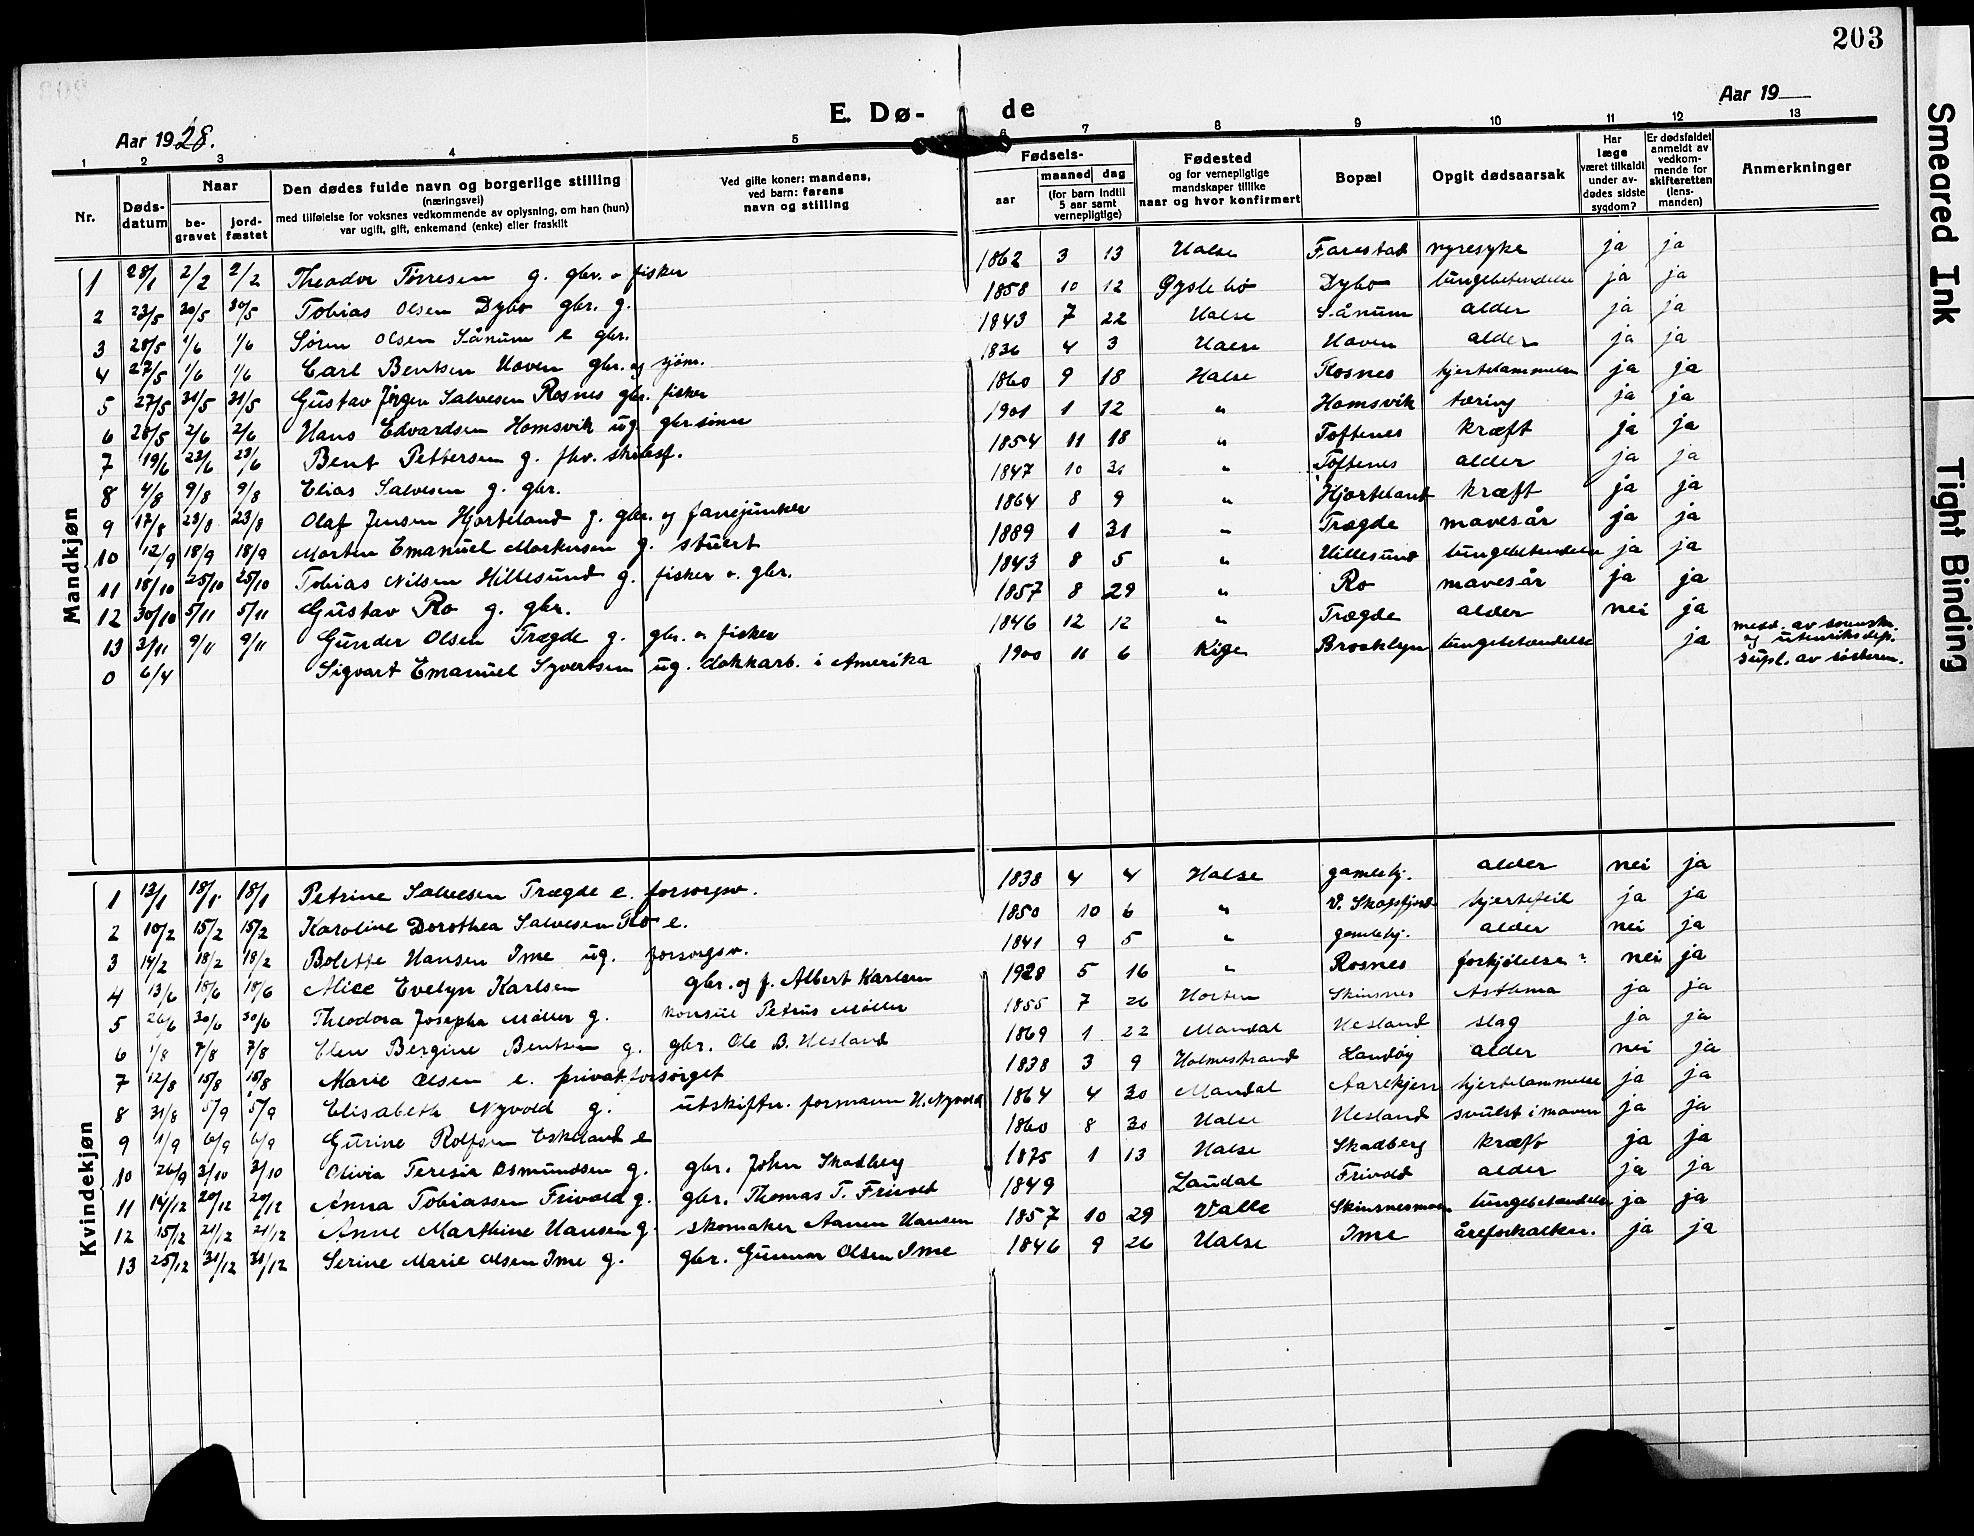 203
E. Dø-de
Aar 1928.
Aar 19
1 2 3 4 5 6 7 8 9 10 11 12 13
Nr.
Døds-datum
Naar
be-gravet
jord-fæstet
Den dødes fulde navn og borgerlige stilling
(næringsvei)
med tilføielse for voksnes vedkommende av oplysning, om han (hun)
var ugift, gift, enkemand (enke) eller fraskilt
Ved gifte koner: mandens,
ved barn: farens
navn og stilling
Fødsels-
aar
maaned dag
(for barn indtil
5 aar samt
vernepligtige)
Fødested
og for vernepligtige
mandskaper tillike
naar og hvor konfirmert
Bopæl
Opgit dødsaarsak
Har
læge
været tilkaldt
under av-
dødes sidste
sygdom?
Er dødsfaldet
anmeldt av
vedkom-
mende for
skifteretten
(lens-
manden)
Anmerkninger
Mandkjøn
1 28/1 2/2 2/2 Theodor Tørresen g. gbr. o fisker 1862 3 13 Halse Farestad nyresyke ja ja
2 23/5 30/5 30/5 Tobias Olsen Dybo gbr. g. 1858 10 12 Øyslebø Dybo lungebetendelse ja ja
3 28/5 1/6 1/6 Søren Olsen Sånum e gbr. 1843 7 22 Halse Sånum alder ja ja
4 27/5 1/6 1/6 Carl Bentsen Hoven gbr. og sjøm. 1836 4 3 Halse Hoven alder ja ja
5 27/5 31/5 31/5 Gustav Jørgen Salvesen Rosnes gbr. fisker 1860 9 18 Halse Rosnes hjertelammelse ja ja
6 28/5 2/6 2/6 Hans Edvardsen Homsvik ug. gbr sønn 1901 1 12 " Homsvik tæring ja ja
7 19/6 23/6 23/6 Bent Pettersen g. fhv. skibsf. 1854 11 18 " Toftenes kræft ja ja
8 4/8 9/8 9/8 Elias Salvesen g. gbr. 1847 10 31 " Toftenes alder ja ja
9 17/8 23/8 23/8 Olaf Jensen Hjorteland g. gbr. og fanejunker 1864 8 9 " Hjorteland kræft ja ja
10 12/9 18/9 18/9 Morten Emanuel Mortensen g. stuert 1889 1 31 " Trægde mavesår ja ja
11 18/10 25/10 25/10 Tobias Nilsen Hillesund g. fisker o. gbr. 1843 8 5 " Hillesund lungebetendelse ja ja
12 30/10 5/11 5/11 Gustav Ro g. gbr. 1857 8 29 " Ro mavesår ja ja
13 3/11 9/11 9/11 Gunder Olsen Trægde g. gbr. o fisker 1846 12 12 " Trægde alder nei ja
0 6/4 Sigvart Emanuel Syvertsen ug. dokkarb. i Amerika 1900 11 6 Kige Brooklyn lungebetændelse ja medd. av
og utenriksdep.
supl. av søsteren.
Kvindekjøn
1 13/1 18/1 18/1 Petrine Salvesen Trægde e. forsorgsv. 1838 4 4 Halse gamlehj. alder nei ja
2 10/2 15/2 15/2 Karoline Dorothea Salvesen Ro e. 1850 10 6 " V. Skogsfjord hjertefeil ja ja
3 14/2 18/2 18/2 Bolette Hansen Ime ug. forsorgsv. 1841 9 5 " gamlehj. alder nei ja
4 13/6 18/6 18/6 Alice Evelyn Karlsen gbr. og f. Albert Karlsen 1928 5 16 " Rosnes forkjølelse? nei ja
5 26/6 30/6 30/6 Theodora Josepha Møller g. konsul Petrus Møller 1855 7 26 Horten Skinsnes Asthma ja ja
6 1/8 7/8 7/8 Elen Bergine Bentsen g. gbr. Ole B. Hesland 1869 1 22 Mandal Hesland slag ja ja
7 12/8 15/8 15/8 Marie Olsen e. privat forsørget 1838 3 9 Holmestrand Landøy alder nei ja
8 31/8 5/9 5/9 Elisabeth Nyvold g. utskiftn. formann H. Nyvold 1864 4 30 Mandal Aarekjerr hjertelammelse ja ja
9 1/9 6/9 6/9 Gurine Rolfsen Eskeland e 1860 8 30 Halse Hesland svulst i maven ja ja
10 26/9 3/10 3/10 Olivia Teresia Osmundsen g. gbr. John Skadberg 1875 1 13 Halse Skadberg kræft ja ja
11 14/12 20/12 20/12 Anna Tobiassen Frivold g. gbr. Thomas T. Frivold 1849 Laudal Frivold alder ja ja
12 15/12 21/12 21/12 Anne Marthine Hansen g. skomaker Aanen Hansen 1857 10 29 Valle Skinsnesmoen lungebetendelse ja ja
13 25/12 31/12 31/12 Serine Marie Olsen Ime g. gbr. Gunnar Olsen Ime 1846 9 26 Halse Ime åreforkalkn. ja ja
Smeared Ink
Tight Binding